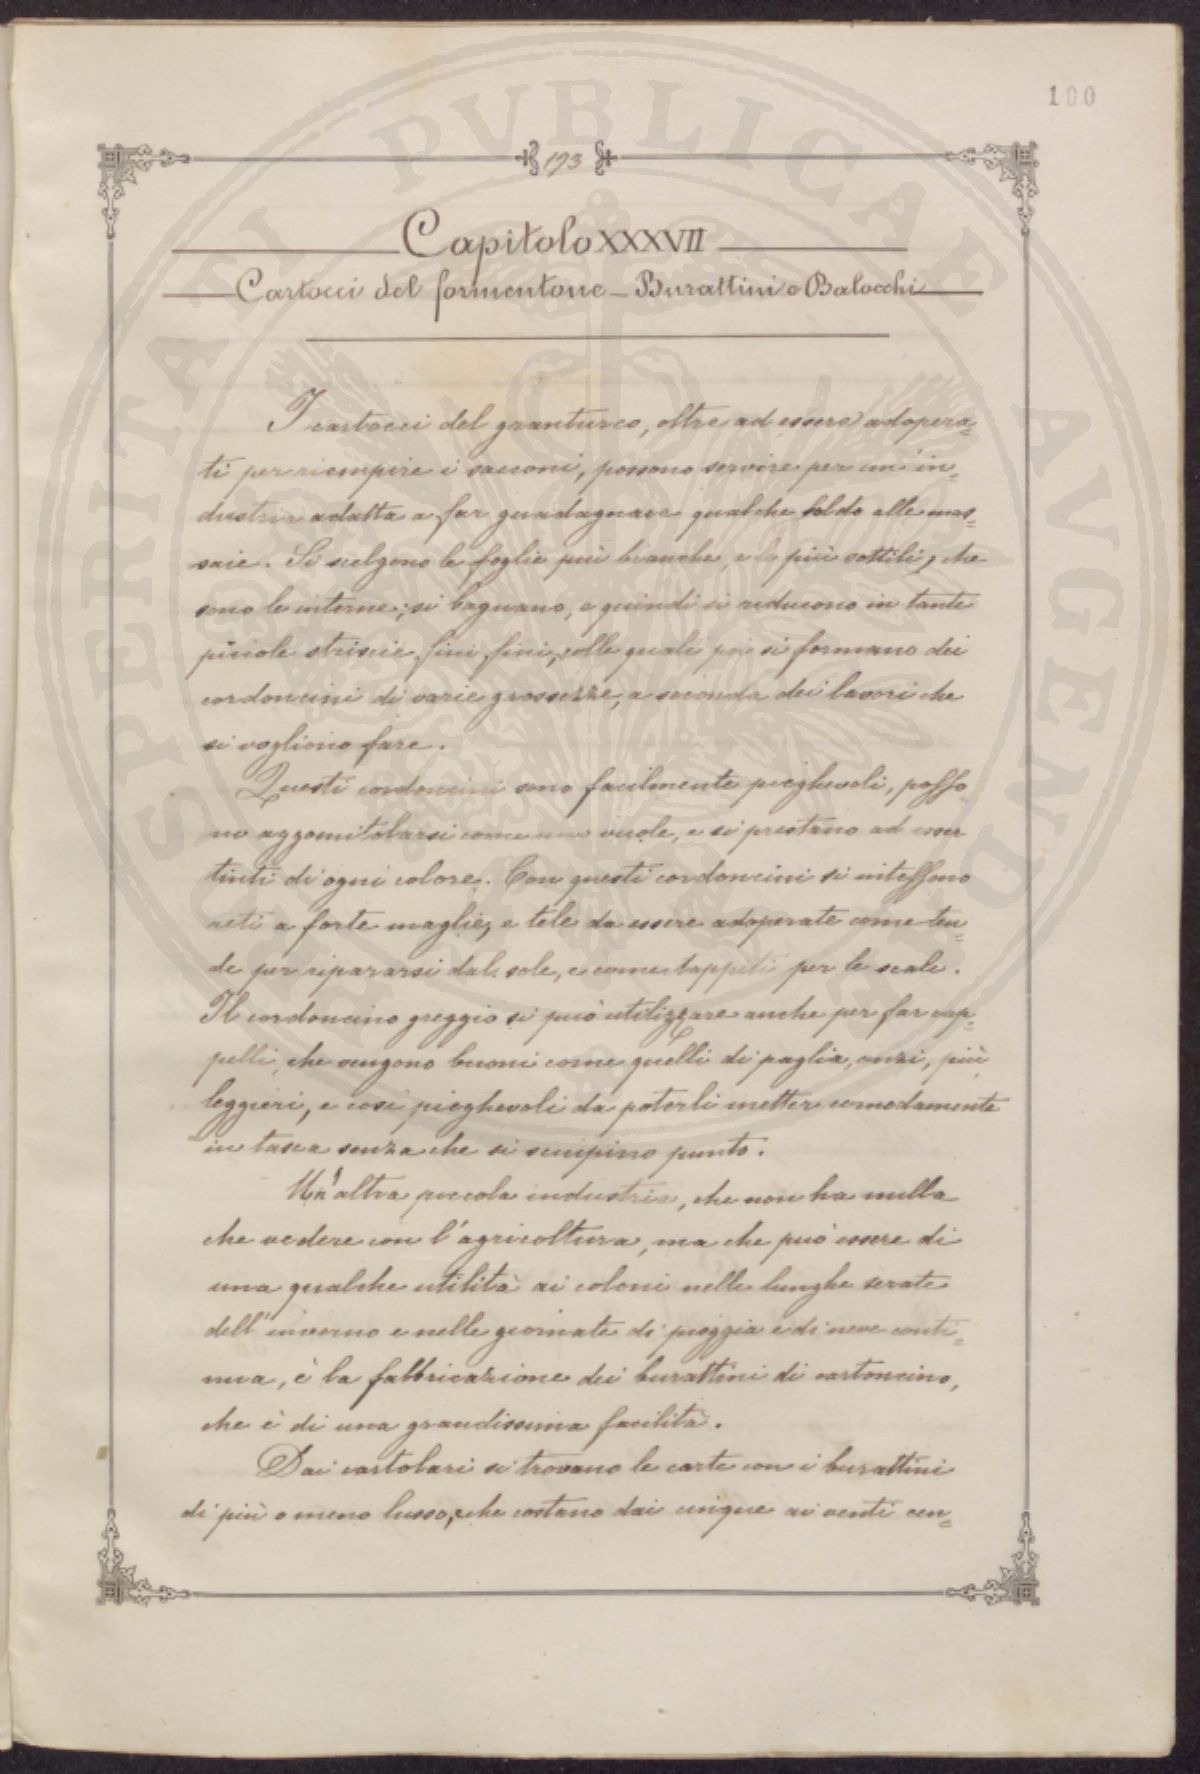 100
193
Capitolo XXXVII
Cartocci del formentone - Burattini o Balocchi
I cartocci del granturco, oltre ad essere adopera=
ti per riempire i sacconi, possono servire per un'in=
dustria adatta a far guadagnare qualche soldo alle mas=
saie. Si scelgono le foglie più bianche, e le più sottili, che
sono le interne; si bagnano, e quindi si riducono in tante
piccole striscie fini fini, colle quali poi si formano dei
cordoncini di varie grossezze, a seconda dei lavori che
si vogliono fare.
Questi cordoncini sono facilmente pieghevoli, posso
no aggomitolarsi come uno vuole, e si prestano ad esser
tinti di ogni colore. Con questi cordoncini si intessono
reti a forte maglie, e tele da essere adoperate come ten=
de per ripararsi dal sole, e come tappeti per le scale.
Il cordoncino greggio si può utilizzare anche per far cap=
pelli, che vengono buoni come quelli di paglia, anzi, più
leggieri, e così pieghevoli da poterli metter comodamente
in tasca senza che si sciupino punto.
Un'altra piccola industria, che non ha nulla
che vedere con l'agricoltura, ma che può essere di
una qualche utilità ai coloni nelle lunghe serate
dell'inverno e nelle giornate di pioggia e di neve conti=
nua, è la fabbricazione dei burattini di cartoncino,
che è di una grandissima facilità.
Dai cartolari si trovano le carte con i burattini
di più o meno lusso, che costano dai cinque ai venti cen=
PROSPERITATI PVBLICAE AVGENDAE